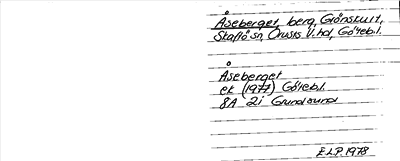 Åseberget, berg, Grönskult,
Stafiö sn, Orusts V. hd, Göteb.l.
Åseberget
ek (1977) Göteb.l.
8A 2i Grundsund
E.L.P. 1978